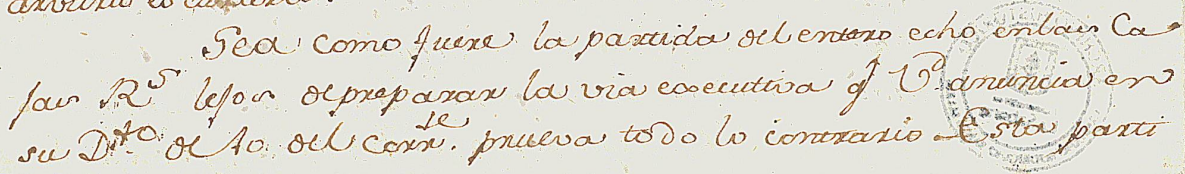 Sea como fuere la partida del entero echo enlas Ca
sas R.s lejos de preparar la via executiva q.e V.d anuncia en
su D.to de 10 del corr.te prueva todo lo contrario Esta parti